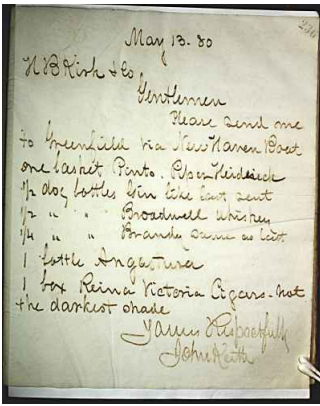 236
May 13. 80
H B Kirk & Co
Gentlemen
Please send me
to Greenfield via New Haven Boat
one basket Pints. Piper Heidsieck
1/2 doz bottles Gin like last sent
1/2 " " Broadwell Whiskey
1/4 " " Brandy same as last
1 bottle Angostura
1 box Reina Victoria Cigars - not
the darkest shade
Yours Respectfully
John Keith